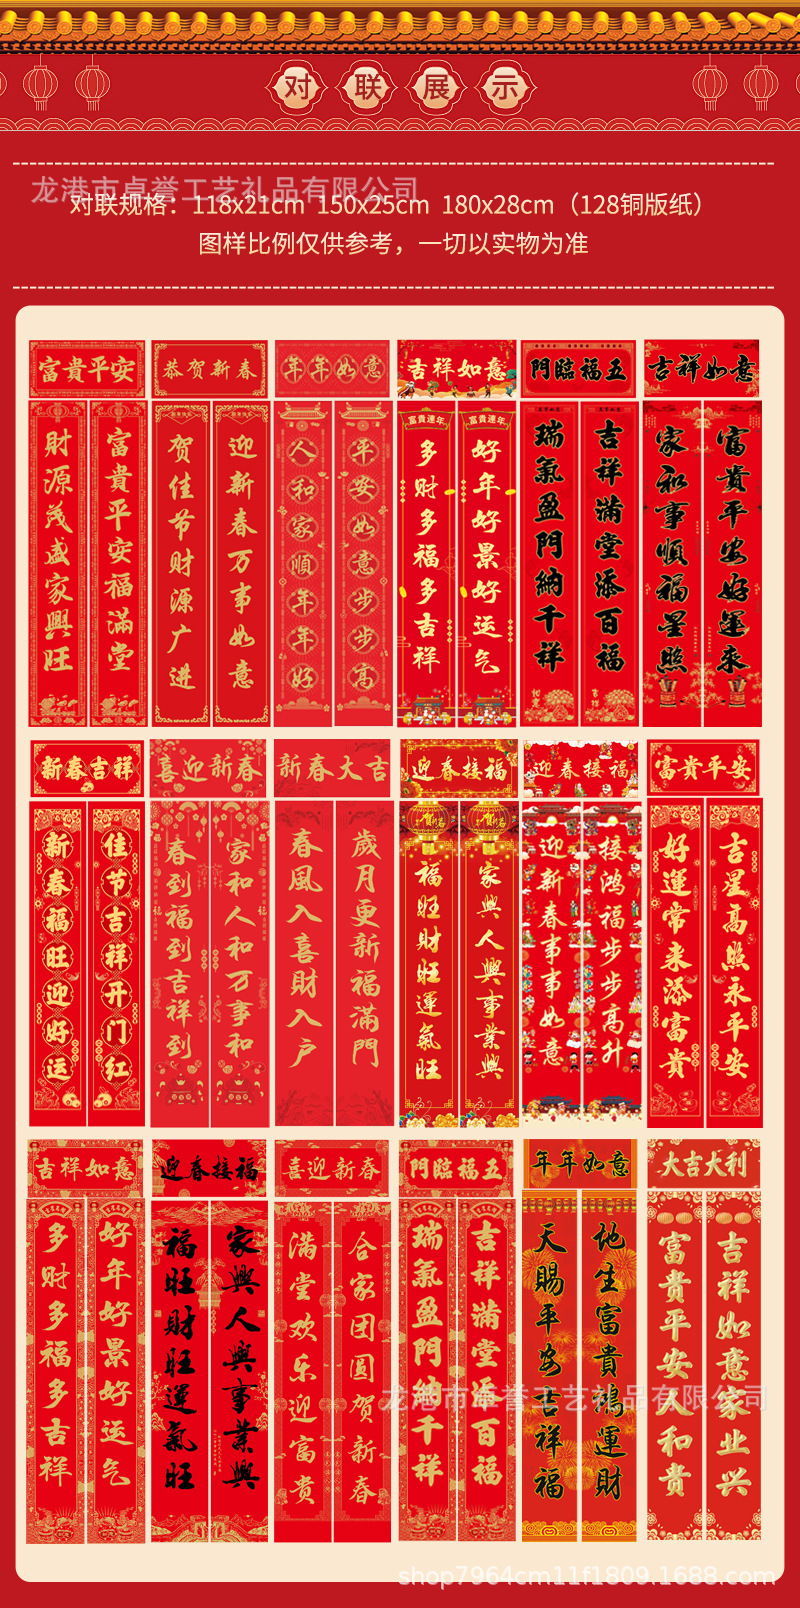 对联展示
龙港市卓誉工艺礼品有限公司
对联规格：118x21cm 150x25cm 180x28cm（128铜版纸）
图样比例仅供参考，一切以实物为准
富貴平安
財源茂盛家興旺
富貴平安福滿堂
恭贺新春
贺佳节财源广进
迎新春万事如意
年年如意
人和家順年年好
平安如意步步高
吉祥如意
富貴連年
富貴連年
多财多福多吉祥
好年好景好运气
門臨福五
瑞氣盈門納千祥
吉祥滿堂添百福
吉祥如意
家和事順福星照
富貴平安好運來
新春吉祥
新春福旺迎好运
佳节吉祥开门红
喜迎新春
春到福到吉祥到
家和人和万事和
新春大吉
春風入喜財入户
歲月更新福滿門
迎春接福
福旺財旺運氣旺
家興人興事業興
迎春接福
迎新春事事如意
接鸿福步步高升
富貴平安
好運常来添富贵
吉星高照永平安
吉祥如意
多财多福多吉祥
好年好景好运气
迎春接福
福旺財旺運氣旺
家興人興事業興
喜迎新春
满堂欢乐迎富贵
合家团圆贺新春
門臨福五
瑞氣盈門納千祥
吉祥滿堂添百福
年年如意
天賜平安吉祥福
地生富貴鴻運財
大吉大利
富贵平安人和贵
吉祥如意家业兴
龙港市卓誉工艺礼品有限公司
shop7964cm11f1809.1688.com